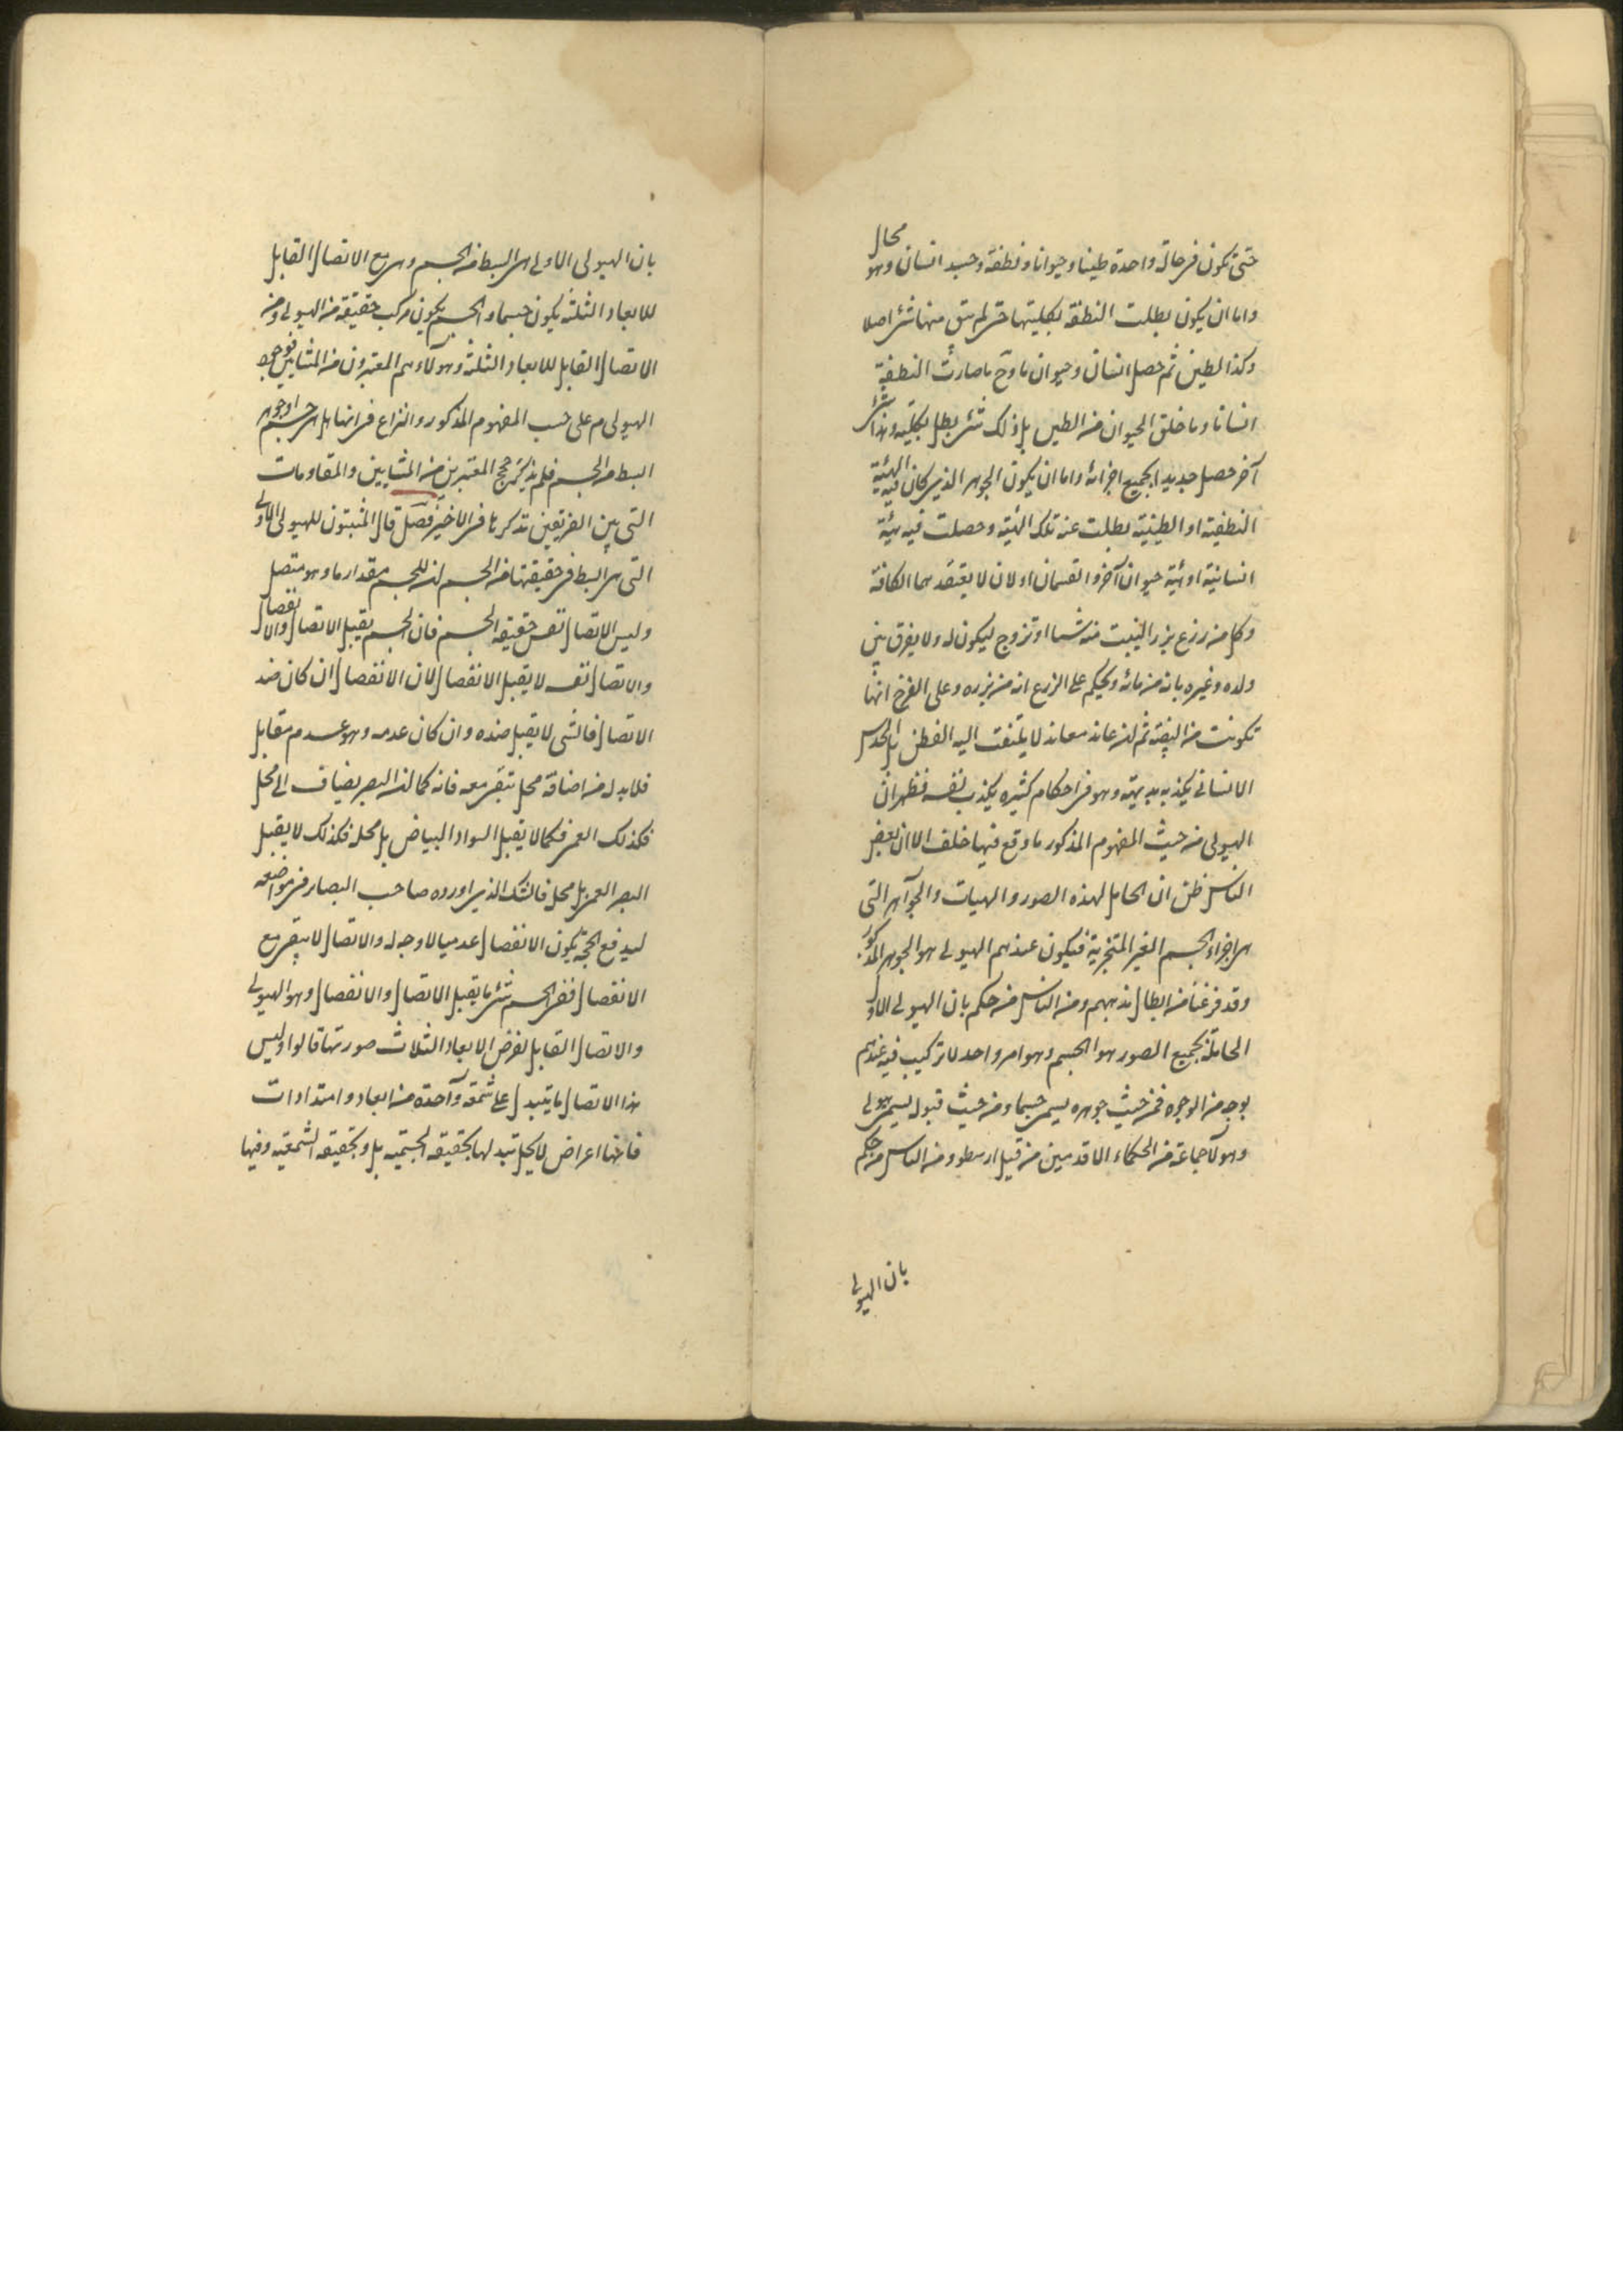 حتى تكون فى حالة واحدة طينا وحيوانا ونطفة وجسد انسان وهو محال
واما ان يكون بطلت النطفة بكليتها حتى لم يبق منها شئ اصلا
وكذا الطين ثم حصل انسان وحيوان ما وح ما صارت النطفة
انسانا وما خلق الحيوان من الطين بل ذلك شئ بطل بكليته وهذا شئ
آخر حصل جديد الجميع اجزائه واما ان يكون الجوهر الذى كان فيه الهيئة
النطفية او الطينية بطلت عنه تلك الهيئة وحصلت فيه هيئة
انسانية او هيئة حيوان آخر والقسمان اولان لا يعتقدهما الكافة
وكل من زرع بزرا لينبت منه شيئا او تزوج ليكون له ولد يفرق بين
ولده وغيره بانه من مائه ويحكم على الزرع انه من بزره وعلى الفرخ انها
تكونت من البيضة ثم ان عاند معاند لا يلتفت اليه الفطن بل الحدس
الانسانى يكذبه بديهته وهو فى احكام كثيره يكذب نفسه فظهر ان
الهيولى من حيث المفهوم المذكور ما وقع فيها خلف الا ان بعض
الناس ظن ان الحامل لهذه الصور والهيات والجواهر التى
هى اجزاء الجسم الغير المتجزية فيكون عندهم الهيولى هو الجوهر المذكور
وقد فرغنا من ابطال مذهبهم ومن الناس من حكم بان الهيولى الاولى
الحاملة لجميع الصور هو الجسم وهو امر واحد لا تركيب فيه عندهم
بوجه من الوجوه فمن حيث جوهره يسمى جسما ومن حيث قبوله يسمى هيولى
وهولآ جماعة من الحكماء الاقدمين من قبل ارسطو ومن الناس من حكم
بان الهيولى
بان الهيولى الاولى هى ابسط من الجسم وهى مع الاتصال القابل
للابعاد الثلثه يكون جسما والجسم يكون مركب حقيقة من الهيولى ومن
الاتصال القابل للابعاد الثلثة وهولاء هم المعتبرون من المشايين فوجود
الهيولى م على حسب المفهوم المذكور والنزاع فى انها هل هى جسم او جوهر
ابسط من الجسم فلم نذكر حجج المعتبرين من المشايين والمقاومات
التى بين الفريقين نذكرها فى الاخير فصل قال المثبتون للهيولى الاولى
التى هى ابسط فى حقيقتها من الجسم ان للجسم مقدار ما وهو متصل
وليس الاتصال نفس حقيقة الجسم فان الجسم يقبل الاتصال والانفصال
والاتصال نفسه لا يقبل الانفصال لان الانفصال ان كان ضد
الاتصال فالشى لا يقبل ضده وان كان عدمه وهو عدم مقابل
فلا بد له من اضافة محل يتقرر معه فانه كما ان البصر يضاف الى محل
فكذلك العمى فكما لا يقبل السواد البياض بل محله فكذلك لا يقبل
البصر العمى بل محله فالشك الذى اورده صاحب البصائر فى مواضعه
ليدفع الحجة بكون الانفصال عدميا لا وجه له والاتصال لا يبقى مع
الانفصال ففى الجسم شئ ما يقبل الاتصال والانفصال وهو الهيولى
والاتصال القابل لفرض الابعاد الثلاث صورتها قالوا وليس
هذا الاتصال ما يتبدل على شمعة واحدة من ابعاد وامتدادات
فانها اعراض لا يخل تبدلها بحقيقة الجسمية بل وبحقيقة الشمعية وفيها